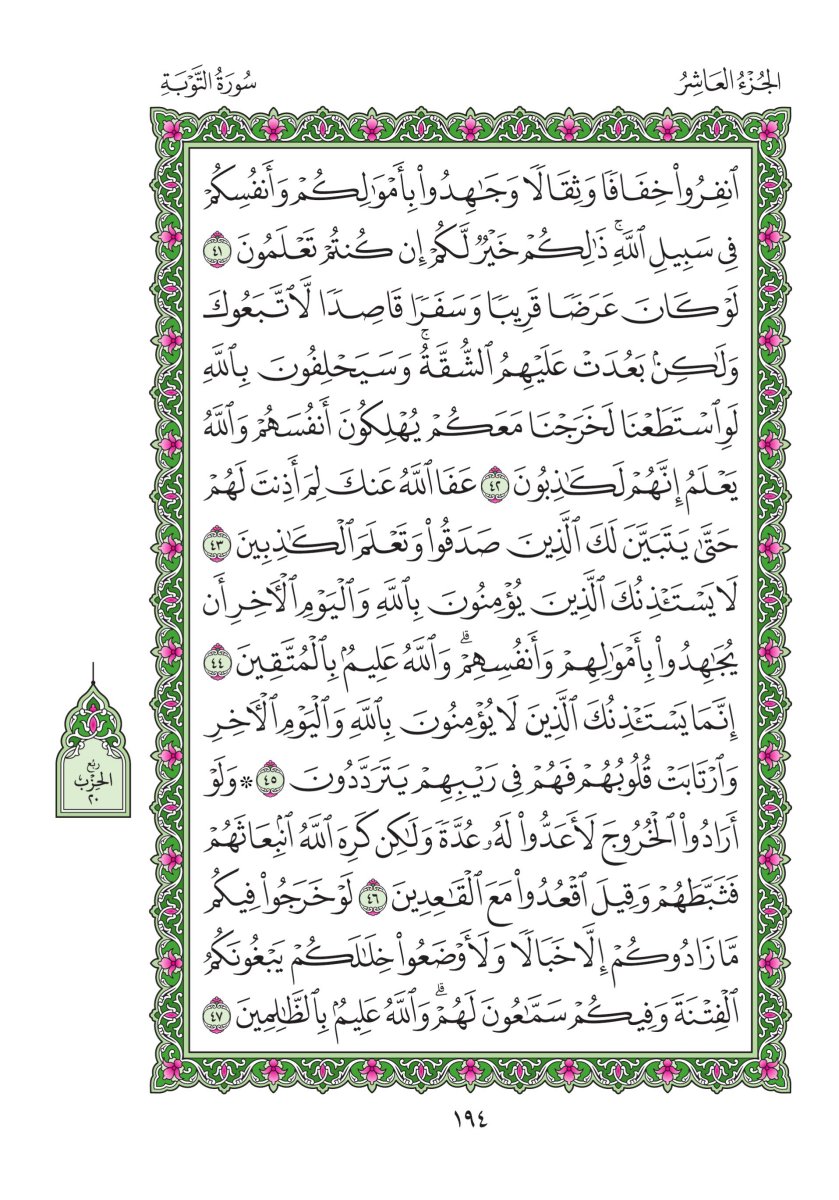 الجُزْءُ العَاشِرُ
سُورَةُ التَّوْبَةِ
ٱنفِرُوا۟ خِفَافًا وَثِقَالًا وَجَٰهِدُوا۟ بِأَمْوَٰلِكُمْ وَأَنفُسِكُمْ
فِى سَبِيلِ ٱللَّهِ ۚ ذَٰلِكُمْ خَيْرٌ لَّكُمْ إِن كُنتُمْ تَعْلَمُونَ ٤١
لَوْ كَانَ عَرَضًا قَرِيبًا وَسَفَرًا قَاصِدًا لَّٱتَّبَعُوكَ
وَلَٰكِنۢ بَعُدَتْ عَلَيْهِمُ ٱلشُّقَّةُ ۚ وَسَيَحْلِفُونَ بِٱللَّهِ
لَوِ ٱسْتَطَعْنَا لَخَرَجْنَا مَعَكُمْ يُهْلِكُونَ أَنفُسَهُمْ وَٱللَّهُ
يَعْلَمُ إِنَّهُمْ لَكَٰذِبُونَ ٤٢ عَفَا ٱللَّهُ عَنكَ لِمَ أَذِنتَ لَهُمْ
حَتَّىٰ يَتَبَيَّنَ لَكَ ٱلَّذِينَ صَدَقُوا۟ وَتَعْلَمَ ٱلْكَٰذِبِينَ ٤٣
لَا يَسْتَـْٔذِنُكَ ٱلَّذِينَ يُؤْمِنُونَ بِٱللَّهِ وَٱلْيَوْمِ ٱلْـَٔاخِرِ أَن
يُجَٰهِدُوا۟ بِأَمْوَٰلِهِمْ وَأَنفُسِهِمْ ۗ وَٱللَّهُ عَلِيمٌۢ بِٱلْمُتَّقِينَ ٤٤
إِنَّمَا يَسْتَـْٔذِنُكَ ٱلَّذِينَ لَا يُؤْمِنُونَ بِٱللَّهِ وَٱلْيَوْمِ ٱلْـَٔاخِرِ
وَٱرْتَابَتْ قُلُوبُهُمْ فَهُمْ فِى رَيْبِهِمْ يَتَرَدَّدُونَ ٤٥ * وَلَوْ
أَرَادُوا۟ ٱلْخُرُوجَ لَأَعَدُّوا۟ لَهُۥ عُدَّةً وَلَٰكِن كَرِهَ ٱللَّهُ ٱنۢبِعَاثَهُمْ
فَثَبَّطَهُمْ وَقِيلَ ٱقْعُدُوا۟ مَعَ ٱلْقَٰعِدِينَ ٤٦ لَوْ خَرَجُوا۟ فِيكُم
مَّا زَادُوكُمْ إِلَّا خَبَالًا وَلَأَوْضَعُوا۟ خِلَٰلَكُمْ يَبْغُونَكُمُ
ٱلْفِتْنَةَ وَفِيكُمْ سَمَّٰعُونَ لَهُمْ ۗ وَٱللَّهُ عَلِيمٌۢ بِٱلظَّٰلِمِينَ ٤٧
رُبْع
الحِزْب
٢٠
١٩٤